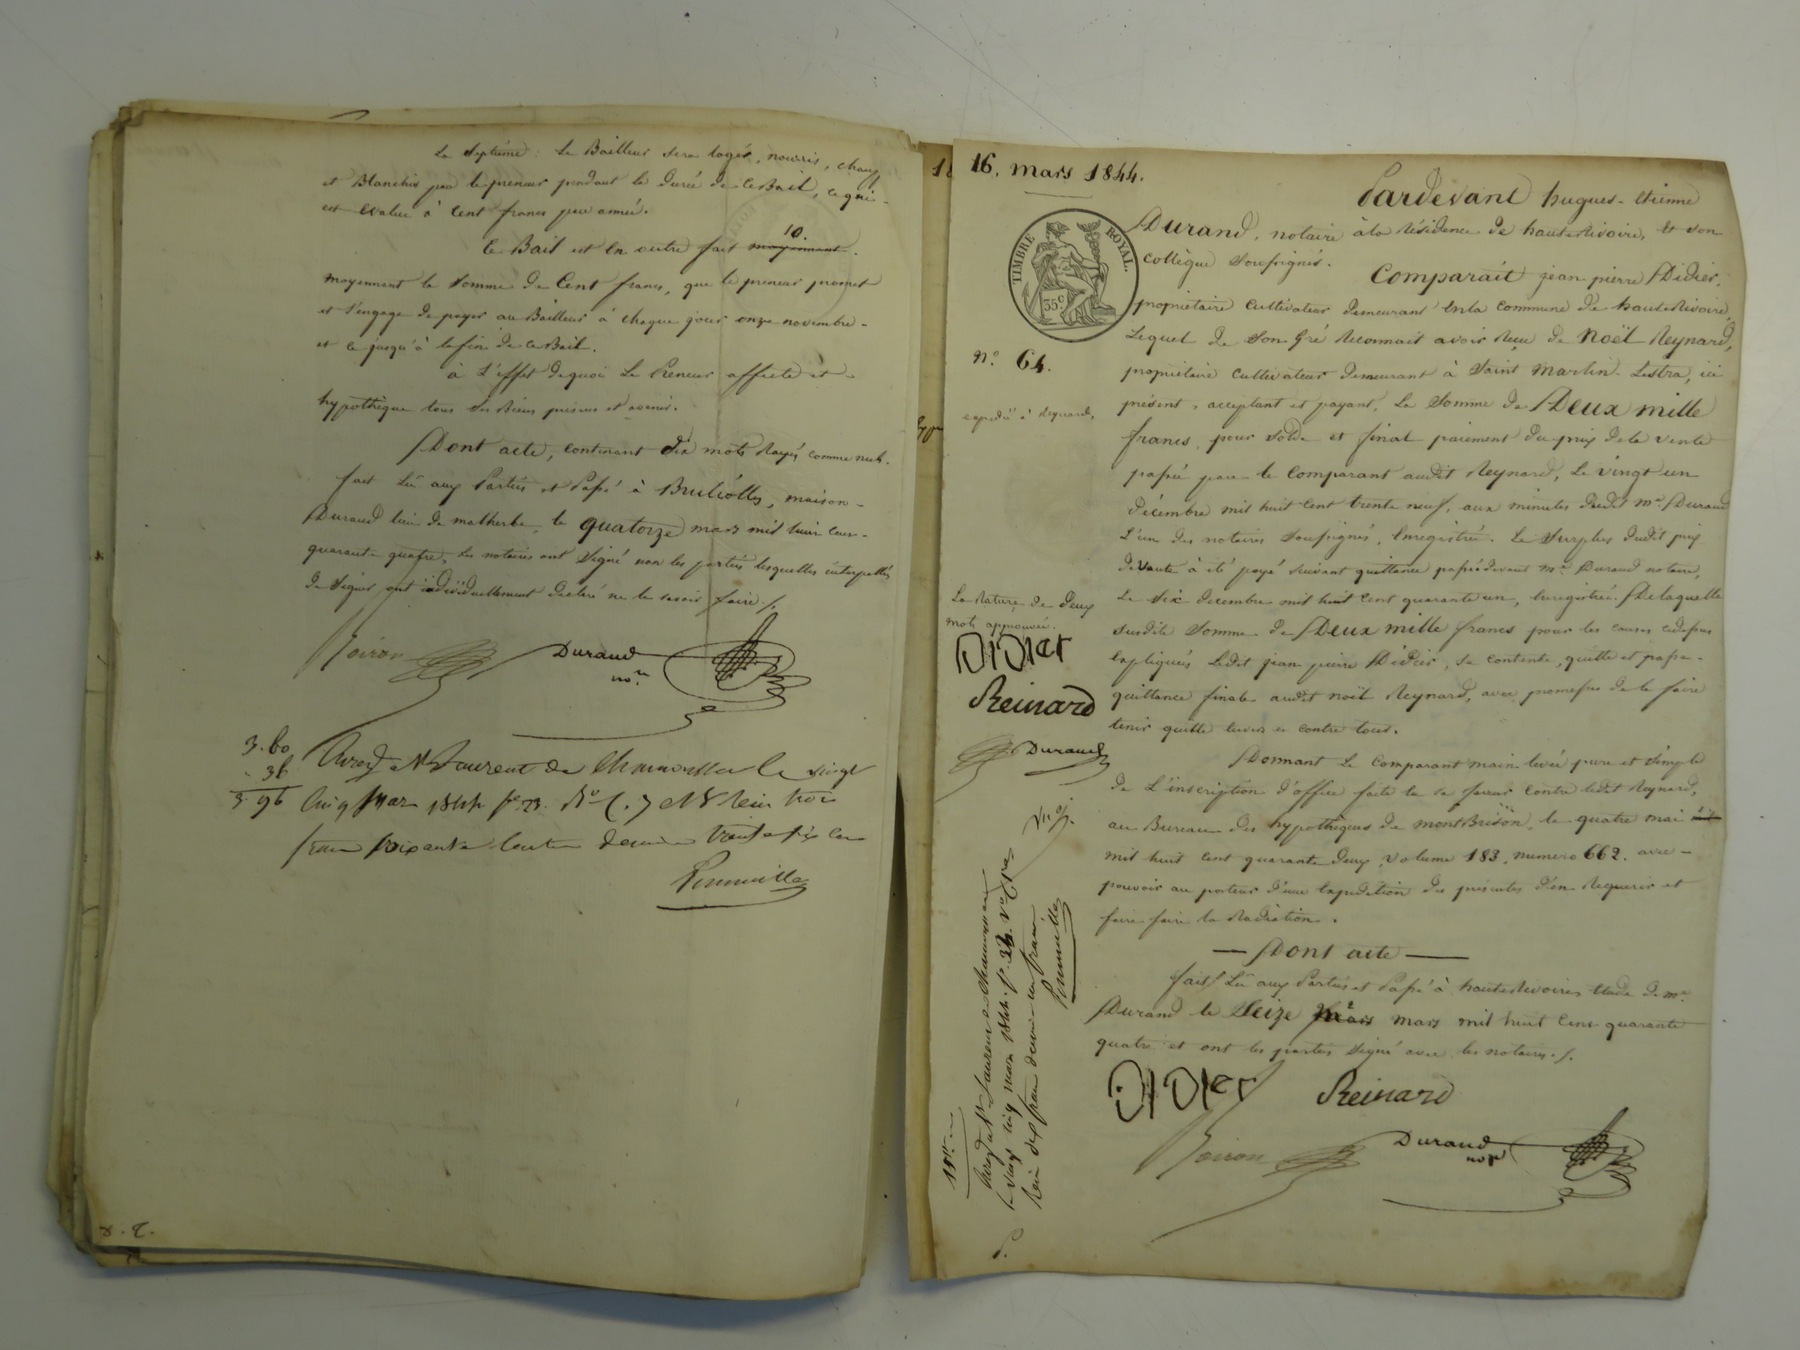 Le Septième : Le Bailleur sera logé, nourri, chauf
et Blanchis par le preneur pendant la durée de ce Bail, ce qui -
est évalué à Cent francs par année.
10.
Ce Bail est en outre fait moyennant.
moyennant la Somme de Cent francs, que le preneur promet
et s'engage de payer au Bailleur à chaque jour onze novembre -
et ce jusqu'à la fin de ce Bail.
à L'effet de quoi Le Preneur affecte et -
hypothèque tous ses Biens présens et avenir.
Dont acte, contenant dix mots Rayés comme nuls.
fait Lû aux Parties et Passé à Brullioles, maison -
Durand lieu de malherbe, le quatorze mars mil huit cent -
quarante quatre, Les notaires ont Signé non les parties lesquelles interpellées
de Signer ont individuellement déclaré ne le savoir faire /.
Durand
no.re
3.60
. 36
3 96
Enreg. à St Laurent de Chamousset le vingt
cinq Mars 1844 fo 73. Ro C. 7 et 8 Reçu trois
francs soixante centimes décime trente six cen
16. mars 1844.
TIMBRE ROYAL.
35 c
n.° 64.
expédié à Reynard,
Pardevant hugues-Etienne
Durand, notaire à la Résidence de hauteRivoire, et son
collègue Soussignés.
Comparait jean pierre Didier,
propriétaire Cultivateur demeurant En la commune de hauteRivoire,
Lequel de Son Gré Reconnait avoir Reçu de Noël Reynard,
propriétaire Cultivateur demeurant à Saint Martin-Lestra, ici
présent, acceptant et payant, La Somme de Deux mille
francs, pour Solde et final paiement du prix de la vente
passée par le Comparant audit Reynard, Le vingt un
décembre mil huit cent trente neuf, aux minutes dudit me. Durand
L'un des notaires Soussignés, Enregistrée. Le Surplus dudit prix
de vente à été payé suivant quittance passée devant me. Durand notaire,
Le Six decembre mil huit cent quarante un, Enregistrée. De laquelle
susdite Somme de Deux mille francs pour les causes cidessus
Expliquées Ledit jean pierre Didier, se contente, quitte et passe -
quittance finale audit noël Reynard, avec promesse de le faire
tenir quitte envers et contre tous.
La Rature de deux
mots approuvée.
DIDIer
Reinard
Durand
Donnant Le Comparant main levée pure et Simple
de L'inscription d'office faite en sa faveur Contre ledit Reynard,
au Bureau des hypothèques de montBrison, le quatre mai
mil huit cent quarante deux, volume 183, numéro 662. avec -
pouvoir au porteur d'une Expédition des présentes d'en Requerir et
faire faire la Radiation.
— Dont acte —
fait Lû aux Parties et Passé à hauteRivoire Etude de me.
Durand le Seize mars mars mil huit Cent quarante
quatre et ont les parties Signé avec les notaires./.
DIDIer
Reinard
Durand
no.re
Enreg. à St Laurent de Chamousset
le vingt cinq mars 1844. fo
Reçu dix francs décime un franc